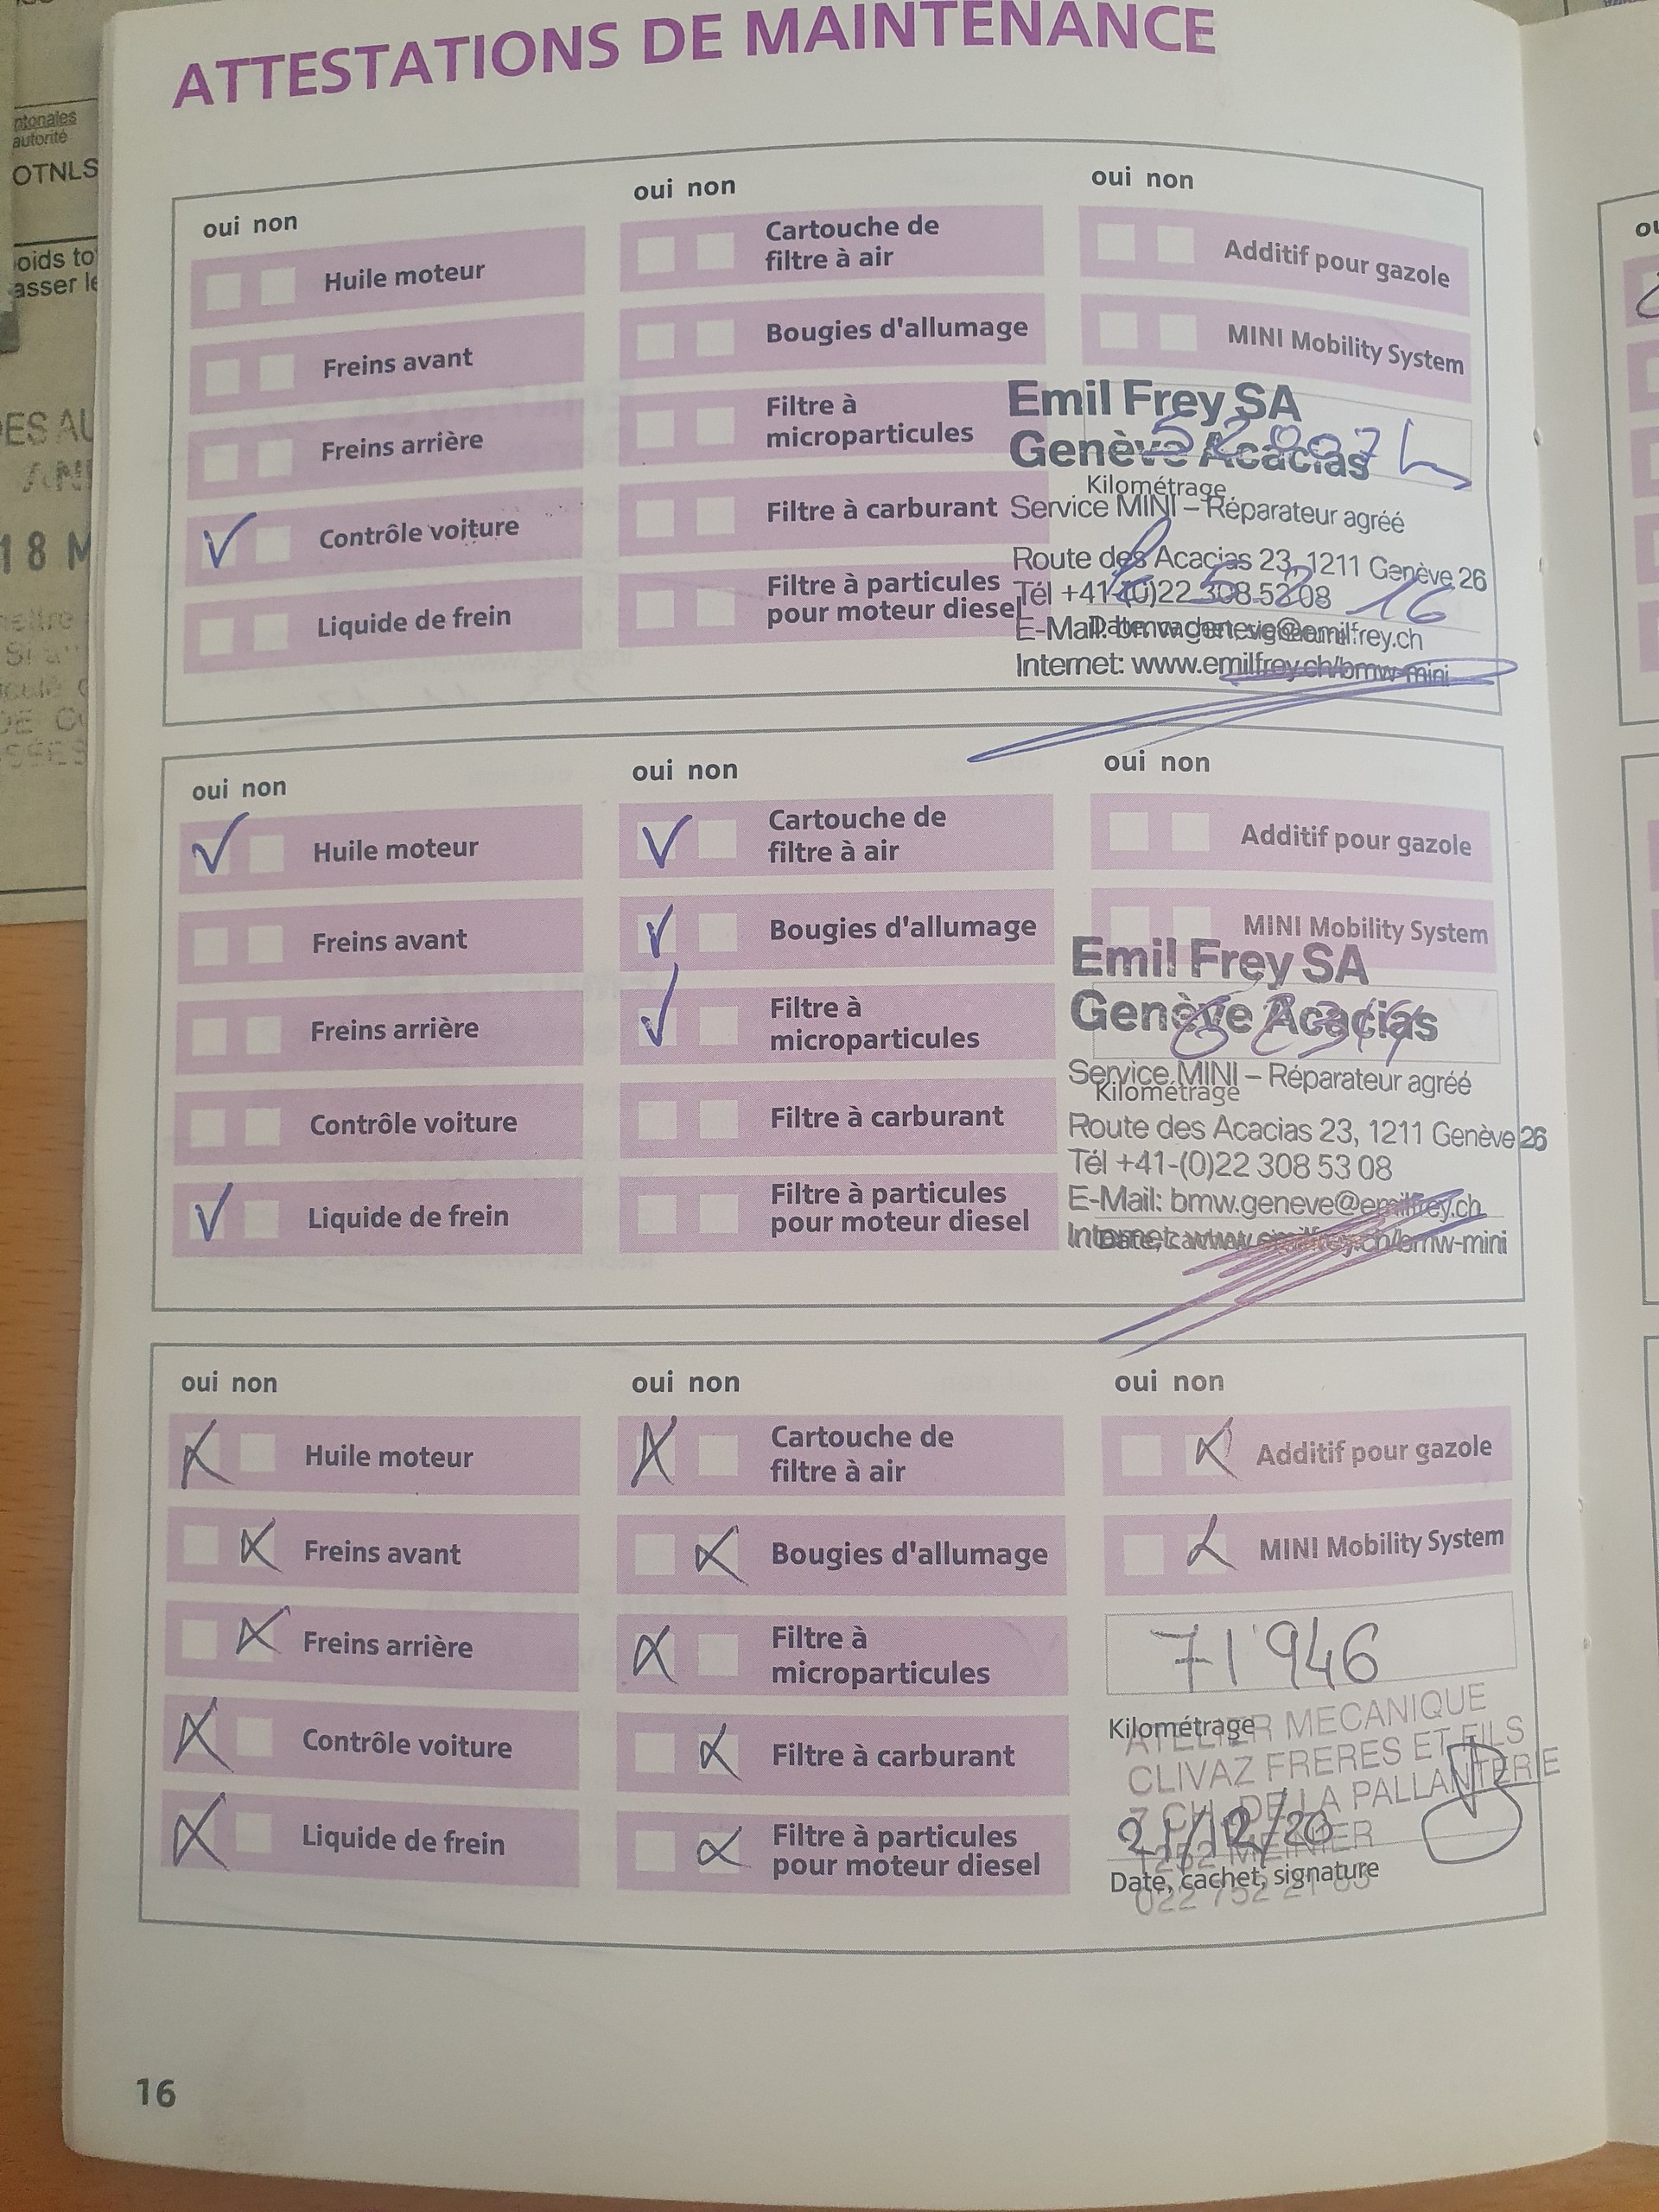 ATTESTATIONS DE MAINTENANCE
ntonales
autorité
OTNLS
oids to
asser le
DES AU
18 M
oui non
Huile moteur
Freins avant
Freins arrière
Contrôle voiture
Liquide de frein
oui non
Cartouche de
filtre à air
Bougies d'allumage
Filtre à
microparticules
Filtre à carburant
Filtre à particules
pour moteur diesel
oui non
Additif pour gazole
MINI Mobility System
Emil Frey SA
Genève Acacias
Kilométrage
Service MINI – Réparateur agréé
Route des Acacias 23, 1211 Genève 26
Tél +41-(0)22 308 53 08
E-Mail: bmw.geneve@emilfrey.ch
Internet: www.emilfrey.ch/bmw-mini
oui non
Huile moteur
Freins avant
Freins arrière
Contrôle voiture
Liquide de frein
oui non
Cartouche de
filtre à air
Bougies d'allumage
Filtre à
microparticules
Filtre à carburant
Filtre à particules
pour moteur diesel
oui non
Additif pour gazole
MINI Mobility System
Emil Frey SA
Genève Acacias
Service MINI – Réparateur agréé
Kilométrage
Route des Acacias 23, 1211 Genève 26
Tél +41-(0)22 308 53 08
E-Mail: bmw.geneve@emilfrey.ch
Internet: www.emilfrey.ch/bmw-mini
oui non
Huile moteur
Freins avant
Freins arrière
Contrôle voiture
Liquide de frein
oui non
Cartouche de
filtre à air
Bougies d'allumage
Filtre à
microparticules
Filtre à carburant
Filtre à particules
pour moteur diesel
oui non
Additif pour gazole
MINI Mobility System
71'946
Kilométrage
ATELIER MECANIQUE
CLIVAZ FRERES ET FILS
7 CH. DE LA PALLANTERIE
21/12/20
1252 MEINIER
Date, cachet, signature
16